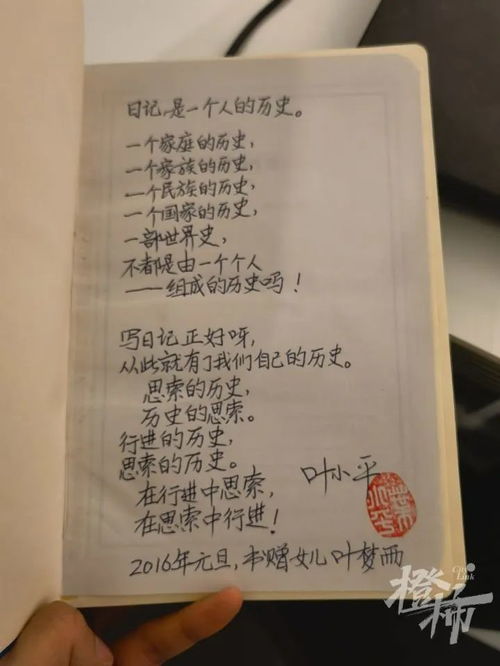 日记,是一个人的历史。
一个家庭的历史,
一个家族的历史,
一个民族的历史,
一个国家的历史,
一部世界史,
不都是由一个个人
——组成的历史吗!
写日记正好呀,
从此就有了我们自己的历史。
思索的历史,
历史的思索。
行进的历史,
思索的历史。
在行进中思索,
在思索中行进!
叶小平
葉小平
2016年元旦,书赠女儿叶梦西
橙柿
City Link